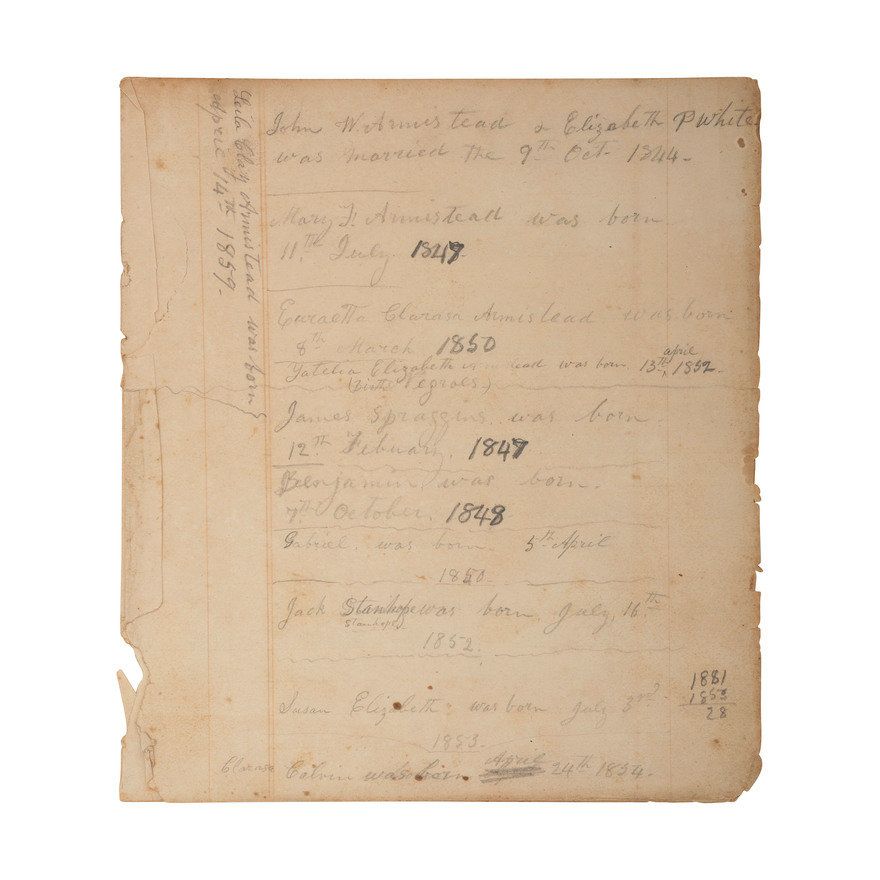 John W. Armistead & Elizabeth P White
was married the 9th Oct. 1844.
Mary F. Armistead was born
11th July 1847.
Euraetta Clarasa Armistead was born
8th March 1850
Elizabeth was born 13th april 1852.
Negroes)
James Spraggins was born
12th Febuary. 1847
Benjamin was born.
7th October. 1848
Gabriel. was born 5th April
1850.
Jack Stanhope was born July 16th
Stanhope)
1852.
Susan Elizabeth was born July 3rd
1853.
Clarasa Calvin was born April 24th 1854.
1881
28
Leila Clay Armistead was born
april 14th 1859.